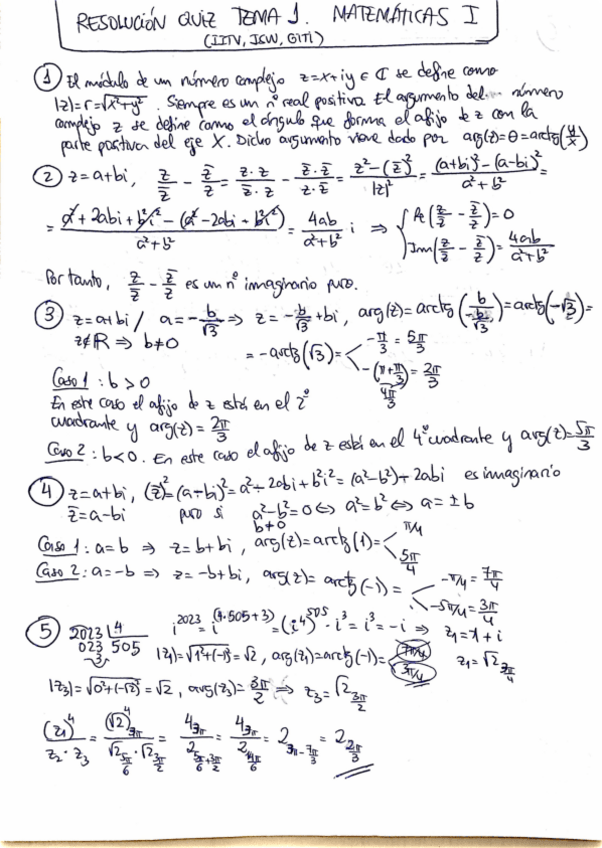 RESOLUCIÓN QUIZ TEMA 1. MATEMÁTICAS I
(IITV, ISW, GITI)
① El módulo de un número complejo z=x+iy ∈ ℂ se define como
|z|=r=√(x²+y²). Siempre es un nº real positivo. El argumento del número
complejo z se define como el ángulo que forma el afijo de z con la
parte positiva del eje X. Dicho argumento viene dado por arg(z)=θ=arctg(y/x)
② z=a+bi, z/z̄ - z̄/z = z·z/z̄·z - z̄·z̄/z·z̄ = z²-(z̄)²/|z|² = (a+bi)²-(a-bi)²/a²+b² =
= a²+2abi+b²i²-(a²-2abi+b²i²)/a²+b² = 4ab/a²+b² i ⇒ { Re(z/z̄ - z̄/z)=0
Im(z/z̄ - z̄/z)=4ab/a²+b²
Por tanto, z/z̄ - z̄/z es un nº imaginario puro.
③ z=a+bi / a=-b/√3 ⇒ z=-b/√3+bi, arg(z)=arctg(b/-b/√3)=arctg(-√3)=
z∉ℝ ⇒ b≠0
=-arctg(√3)= -π/3 = 5π/3
-(π+π/3) = 2π/3
4π/3
Caso 1: b>0
En este caso el afijo de z está en el 2º
cuadrante y arg(z)=2π/3
Caso 2: b<0. En este caso el afijo de z está en el 4º cuadrante y arg(z)=5π/3
④ z=a+bi, (z̄)²=(a-bi)²=a²-2abi+b²i²=(a²-b²)+2abi es imaginario
z̄=a-bi puro si a²-b²=0 ⇔ a²=b² ⇔ a=±b
b≠0
Caso 1: a=b ⇒ z=b+bi, arg(z)=arctg(1)= π/4
5π/4
Caso 2: a=-b ⇒ z=-b+bi, arg(z)=arctg(-1)= -π/4=7π/4
-5π/4=3π/4
⑤ 2023 |4
023 505
3
i²⁰²³=i^(4·505+3)=(i⁴)⁵⁰⁵·i³=i³=-i ⇒ z₁=1+i
|z₁|=√(1²+(-1)²)=√2, arg(z₁)=arctg(-1)= 7π/4
3π/4
z₁=√2 3π/4
|z₃|=√(0²+(-√2)²)=√2, arg(z₃)=3π/2 ⇒ z₃=√2 3π/2
(z₁)⁴/z₂·z₃ = (√2)⁴ 3π/√2 5π/6·√2 3π/2 = 4 3π/2 5π/6+3π/2 = 4 3π/2 14π/6 = 2 3π-7π/3 = 2 2π/3